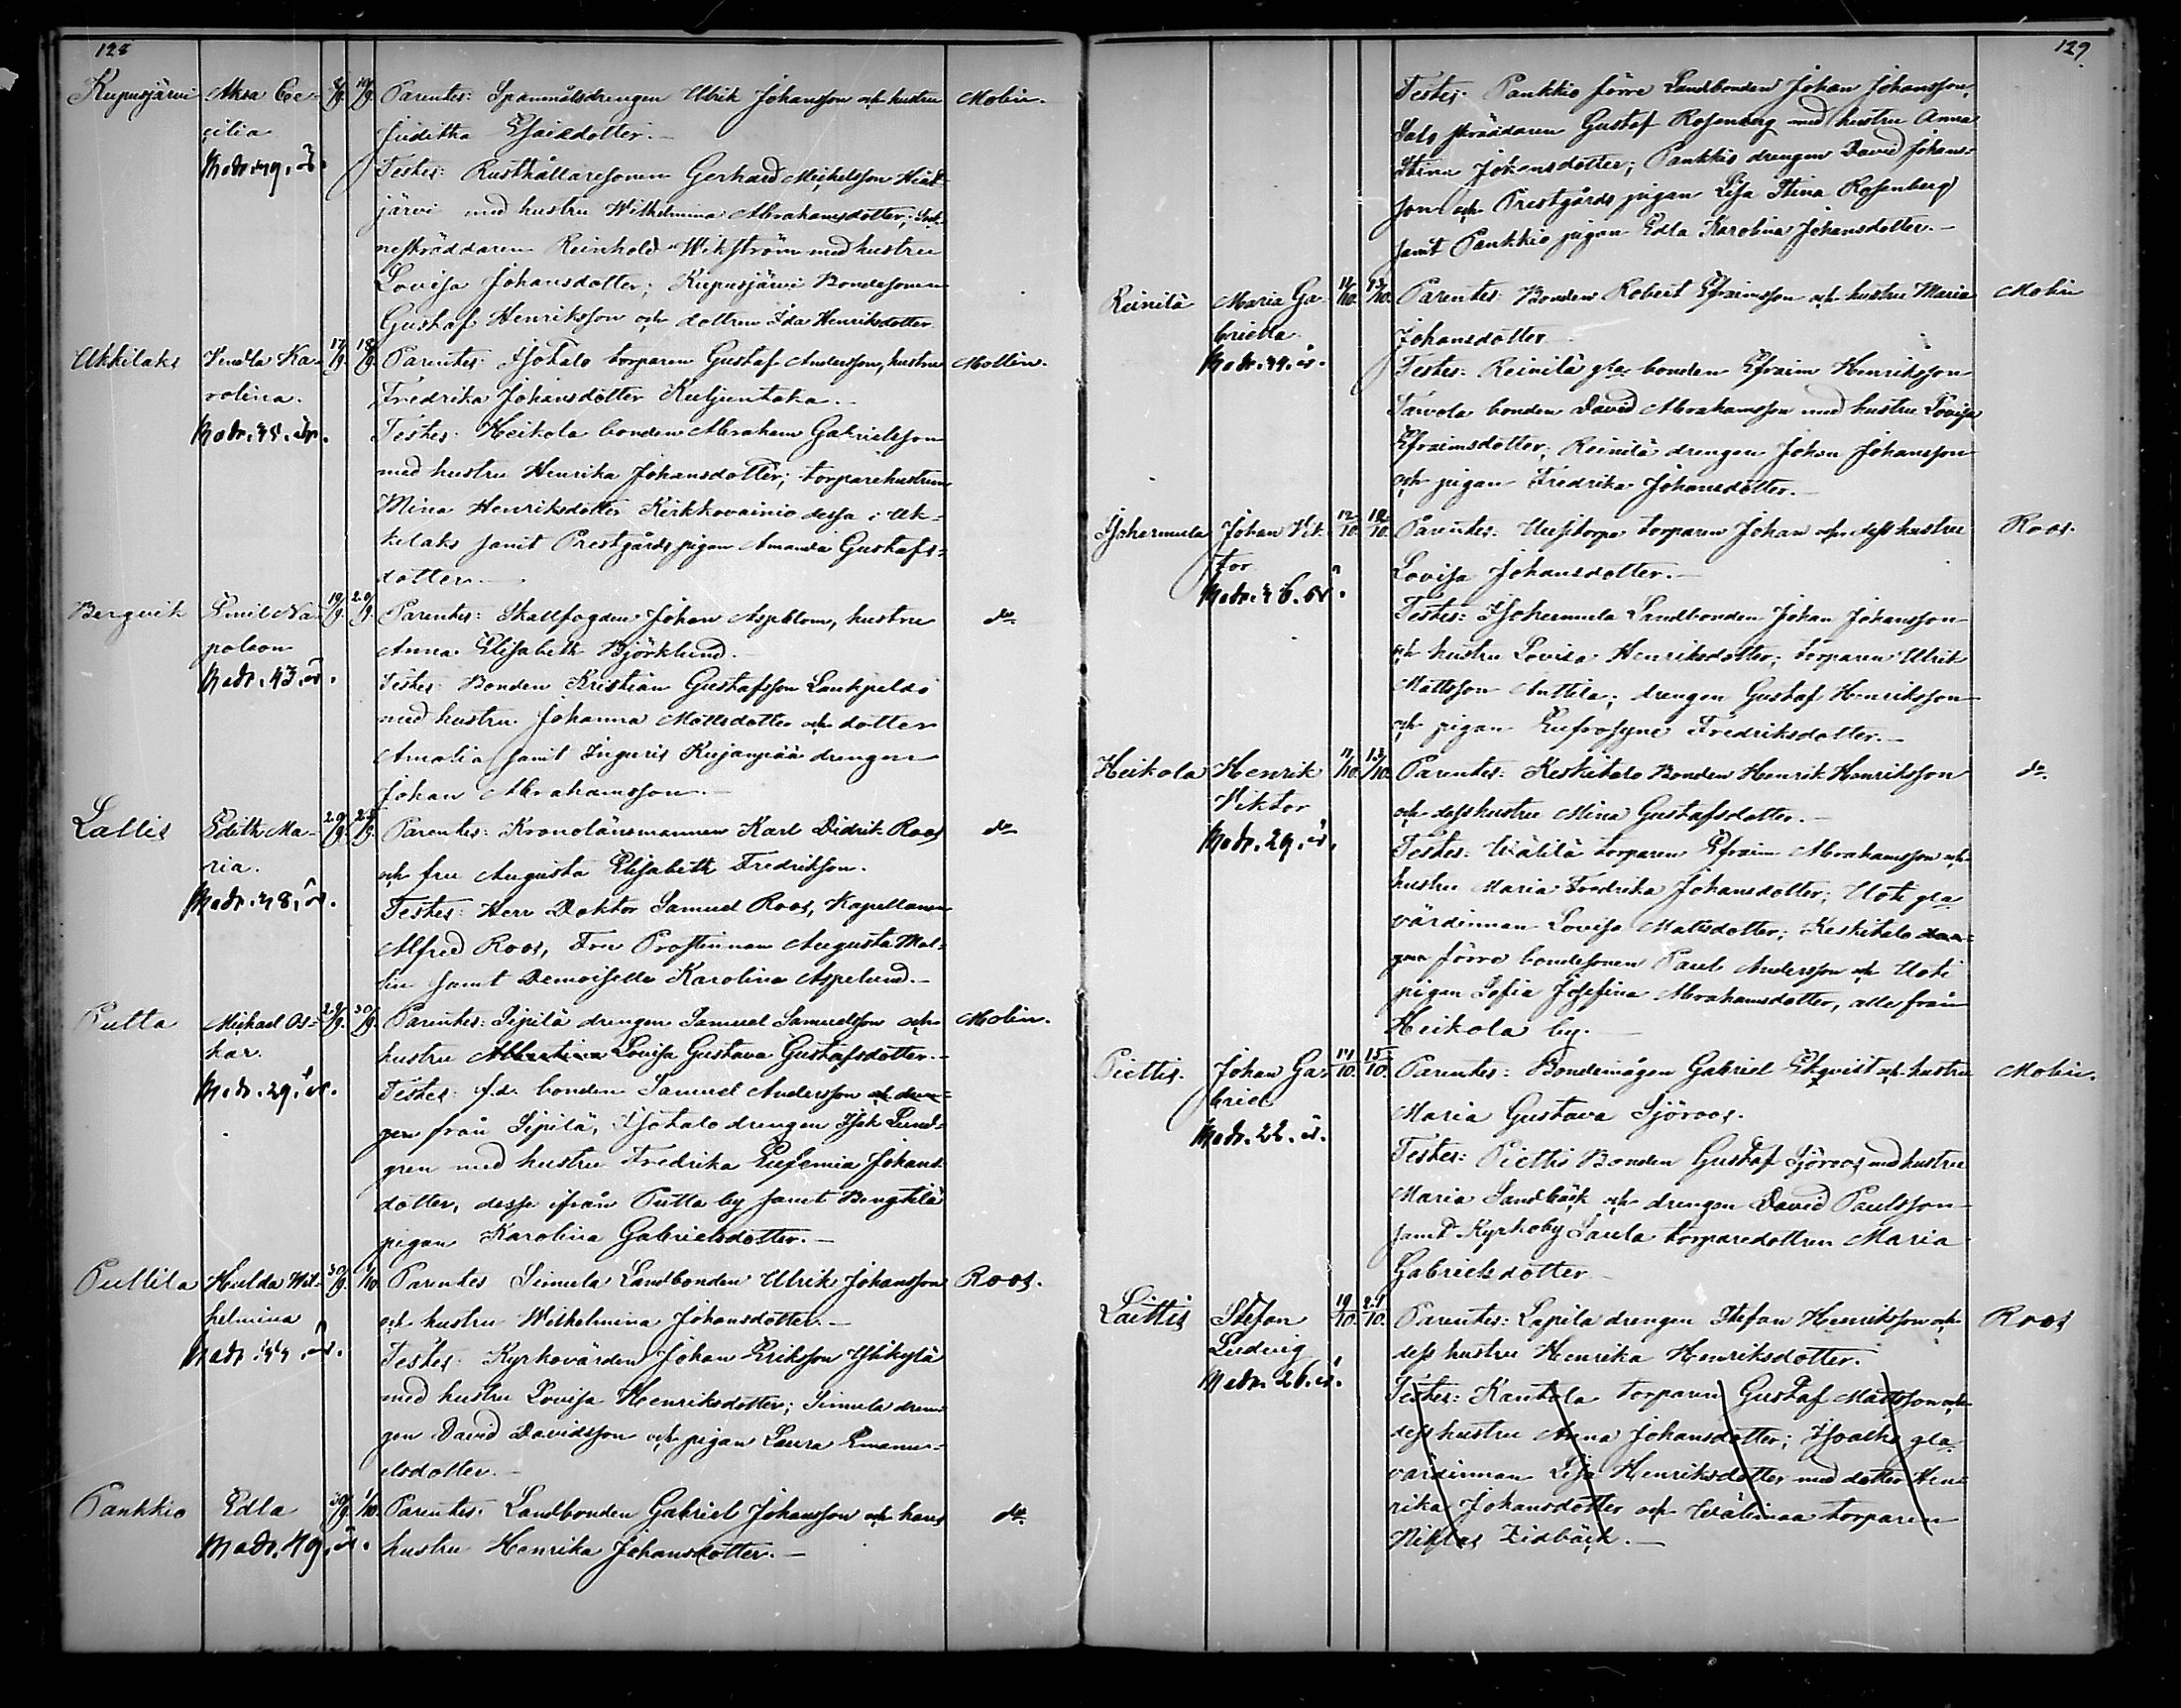 128
Kupusjärvi Aksa Cec- 8/9. 10/9. Parentes: Spannmålsdrengen Ulrik Johansson och hustru Molin.
cilia Juditha Esaiædotter.—
Testes: Rusthållaresonen Gerhard Michelsson Hiat-
järvi med hustru Wilhelmina Abrahamsdotter; Sock-
neskräddaren Reinhold Wikström med hustru
Lovisa Johansdotter; Kupusjärvi Bondesonen
Gustaf Henriksson och dottren Ida Henriksdotter
Ukkilaks Vendla Ka- 17/9. 18/9. Parentes: Isotalo torparen Gustaf Andersson, hustru Mollin.
rolina. Fredrika Johansdotter Kuljuntaka.—
Modr. 35. år. Testes: Heikola bonden Abraham Gabrielsson
med hustru Henrika Johansdotter; torparehustrun
Mina Henriksdotter Kirkkovainio dessa i Uk-
kilaks samt Prestgårds pigan Amanda Gustafs-
dotter.—
Bergvik Emil Na- 19/9. 20/9. Parentes: Skallfogden Johan Aspblom, hustru do
poleon Anna Elisabeth Björklund.—
Modr. 43. år. Testes: Bonden Kristian Gustafsson Lankpeldo
med hustru Johanna Mattsdotter och dotter
Amalia samt Inguris Kujanpää drengen
Johan Abrahamsson.—
Lallis Edith Ma- 20/9. Parentes: Kronolänsmannen Karl Didrik Roos do
ria. och fru Augusta Elisabeth Fredriksson.
Modr. 28. år. Testes: Herr Doktor Samuel Roos, Kapellanen
Alfred Roos, Fru Prostinnan Augusta Mol-
lin samt Demoiselle Karolina Aspelund.—
Putta Michael Os- 29/9. 30/9. Parentes: Sipilä drengen Samuel Samuelsson och Molin.
kar. hustru Albertina Lovisa Gustava Gustafsdotter.—
Modr. 29. år. Testes: f.d. bonden Samuel Andersson och dren-
gen från Sipilä, Isotalo drengen Isak Lund-
gren med hustru Fredrika Eufemia Johans-
dotter, desse ifrån Putta by samt Bengtilä
pigan Karolina Gabrielsdotter.—
Puttila Hulda Wil- 30/9. 1/10 Parentes Simula Landbonden Ulrik Johansson Roos.
helmina och hustru Wilhelmina Johansdotter.—
Modr. 44. år. Testes: Kyrkovärden Johan Eriksson Ylikylä
med hustru Lovisa Henriksdotter; Simula dren-
gen David Davidsson och pigan Laura Emanu-
elsdotter.—
Pankkio Edla 30/9. 1/10. Parentes: Landbonden Gabriel Johansson och hans do
Modr. 49. år. hustru Henrika Johansdotter.—
129
Testes: Pankkio förre Landbonden Johan Johansson,
Salo skräddaren Gustaf Rosenberg med hustru Anna
Stina Johansdotter; Pankkio drengen David Johans-
son och Prestgårds pigan Lisa Stina Rosenberg
samt Pankkio pigan Edla Karolina Johansdotter.—
Reinilä Maria Ga- 11/10. 13/10. Parentes: Bonden Robert Efraimsson och hustru Maria Molin
briella Johansdotter
Modr. 44. år. Testes: Reinilä gla bonden Efraim Henriksson
Tarvola bonden David Abrahamsson med hustru Lovisa
Efraimsdotter; Reinilä drengen Johan Johansson
och pigan Fredrika Johansdotter.—
Isohermula Johan Vik- 12/10. 12/10. Parentes: Uusitorpa torparen Johan och dess hustru Roos.
tor Lovisa Johansdotter.—
Testes: Isohermula Landbonden Johan Johansson
och hustru Lovisa Henriksdotter; torparen Ulrik
Mattsson Anttila; drengen Gustaf Henriksson
och pigan Eufrosyne Fredriksdotter.—
Heikola Henrik 11/10. 13/10. Parentes: Keskitalo Bonden Henrik Henriksson do.
Viktor och dess hustru Mina Gustafsdotter.—
Modr. 29. år. Testes: Välilä torparen Efraim Abrahamsson och
hustru Maria Fredrika Johansdotter; Uoti gla
värdinnan Lovisa Mattsdotter; Keskitalo dren-
gen förre bondesonen Paul Andersson och Uoti
pigan Sofia Josefina Abrahamsdotter, alla från
Heikola by.—
Piettis. Johan Ga- 14/10. 15/10. Parentes: Bondemågen Gabriel Ekqvist och hustru Molin.
briel Maria Gustava Sjöroos.
Modr. 22. år. Testes: Piettis Bonden Gustaf Sjöroos med hustru
Maria Sandbäck och drengen David Paulsson
samt Kyrkoby Laula torparedottren Maria
Gabrielsdotter—
Laittis Stefan 19/10. 21/10. Parentes: Lapila drengen Stefan Henriksson och Roos
Ludvig dess hustru Henrika Henriksdotter.
Modr. 26. år. Testes: Kantola torparen Gustaf Mattsson och
dess hustru Anna Johansdotter; Isoalho gla
värdinnan Lisa Henriksdotter med dotter Hen-
rika Johansdotter och Välimaa torparen
Niklas Lidbäck.—